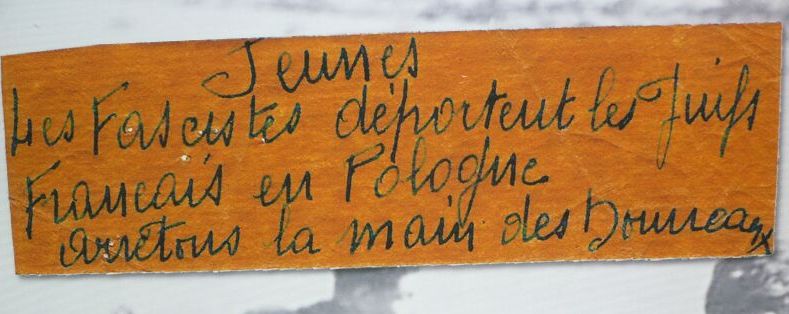 Jeunes
Les Fascistes déportent les Juifs
Francais en Pologne
arretons la main des bourreaux